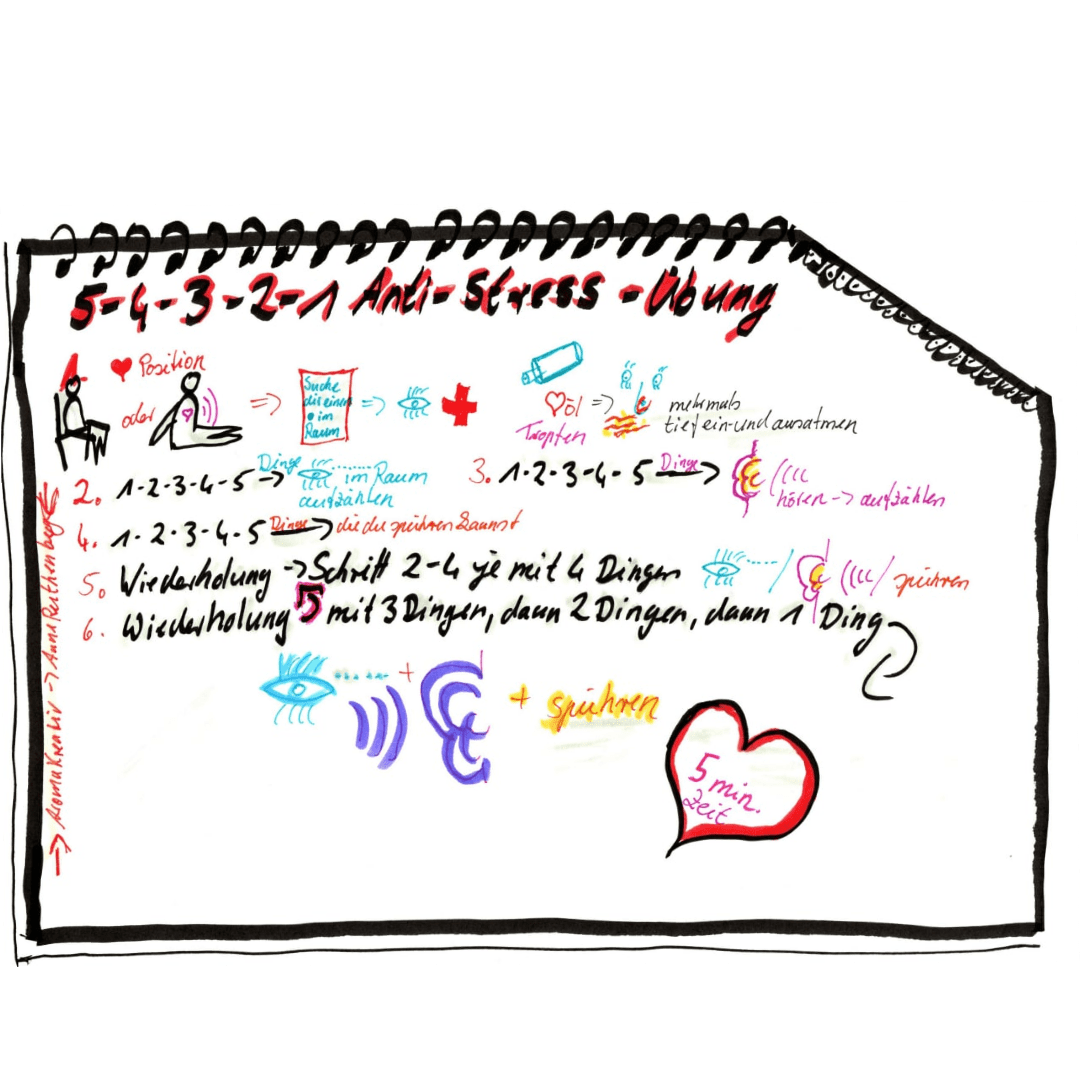 5-4-3-2-1 Anti-Stress-Übung
1. Position
oder
Suche
dir einen
im
Raum
öl
Tropfen
mehrmals
tief ein- und ausatmen
2. 1-2-3-4-5 Dinge im Raum
aufzählen
3. 1-2-3-4-5 Dinge
hören -> aufzählen
4. 1-2-3-4-5 Dinge die du spühren kannst
5. Wiederholung -> Schritt 2-4 je mit 4 Dingen / / spühren
6. Wiederholung 5 mit 3 Dingen, dann 2 Dingen, dann 1 Ding
+ + spühren
5 min.
Zeit
-> AromaKreativ -> Anna